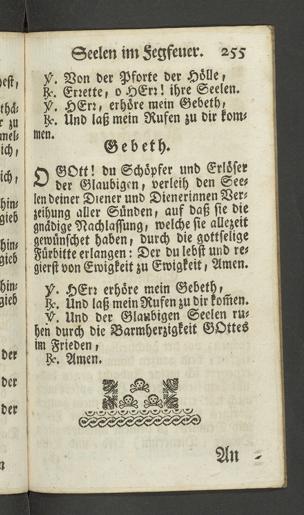 Seelen im Fegfeuer. 255
℣. Von der Pforte der Hölle,
℟. Errette, o HErr! ihre Seelen.
℣. HErr, erhöre mein Gebeth,
℟. Und laß mein Rufen zu dir kom-
men.
Gebeth.
O GOtt! du Schöpfer und Erlöser
der Glaubigen, verleih den See-
len deiner Diener und Dienerinnen Ver-
zeihung aller Sünden, auf daß sie die
gnädige Nachlassung, welche sie allezeit
gewünschet haben, durch die gottselige
Fürbitte erlangen: Der du lebst und re-
gierst von Ewigkeit zu Ewigkeit, Amen.
℣. HErr erhöre mein Gebeth,
℟. Und laß mein Rufen zu dir kom̄en.
℣. Und der Glaubigen Seelen ru-
hen durch die Barmherzigkeit GOttes
im Frieden,
℟. Amen.
An